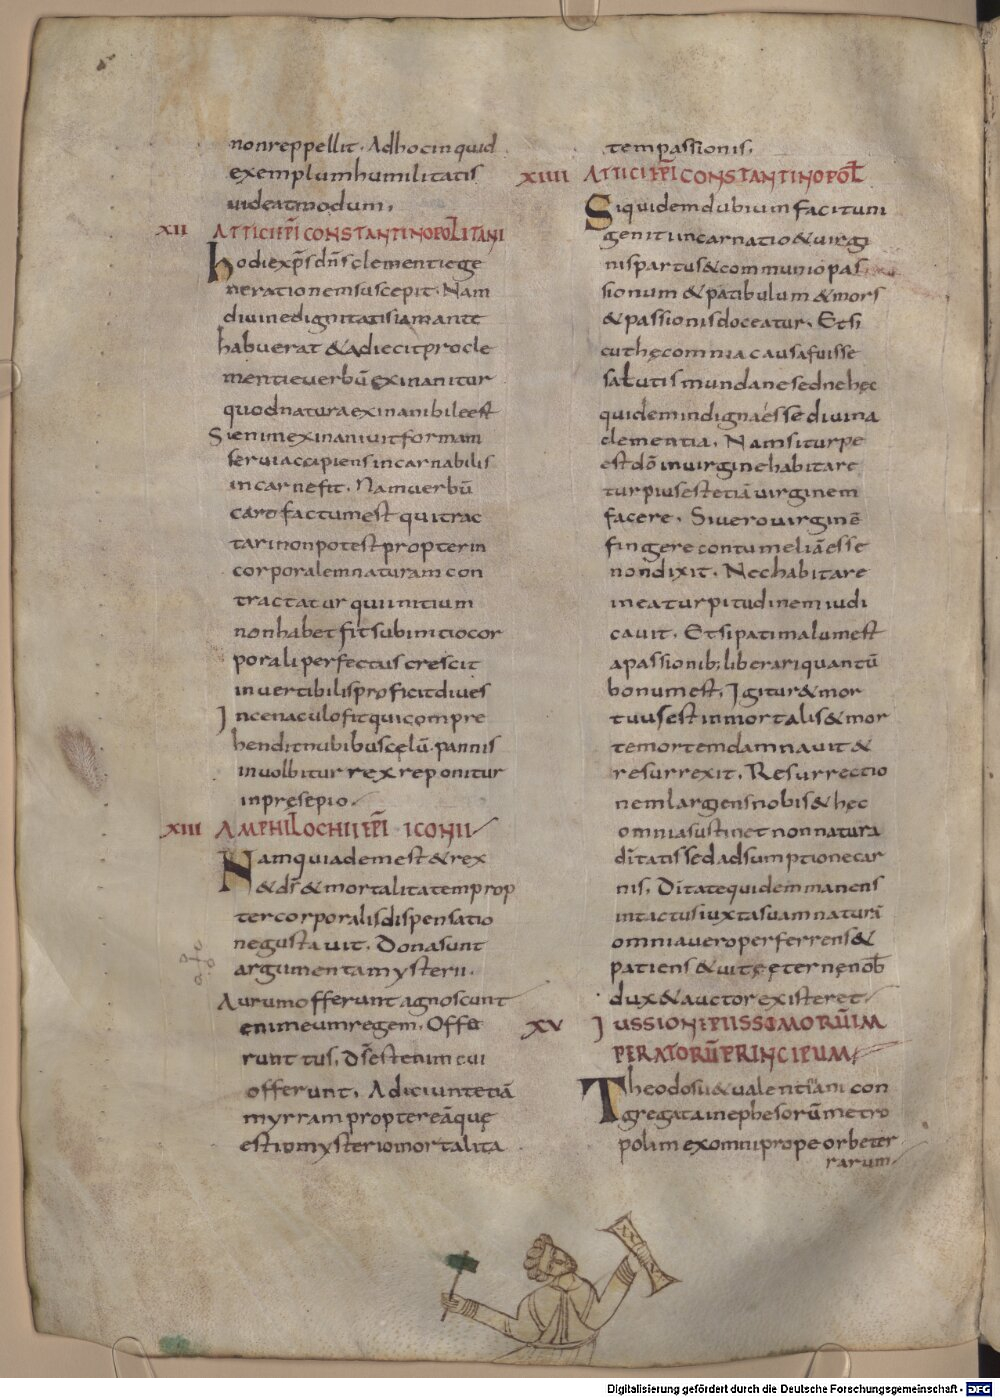 non reppellit. Ad hoc in quid
exemplum humilitatis
videat modum.
XII ATTICI EP̄I CONSTANTINOPOLITANI
hodie xp̄s dn̄s clementie ge
nerationem suscepit. Nam
divine dignitatis iam ante
habuerat & adiecit pro cle
mentie verbū exinanitur
quod natura exinanibile est
Si enim exinanivit formam
servi accipiens incarnabilis
incarne fit. Nam verbū
caro factum est qui trac
tari non potest propter in
corporalem naturam con
tractatur qui initium
non habet fit sub initio cor
porali perfectus crescit
invertibilis proficit dives
In cenaculo fit qui compre
hendit nubibus cęlū. pannis
involbitur rex reponitur
in pręsepio.
XIII AMPHILOCHII EP̄I ICONII
Nam quia dem est & rex
& dī & mortalitatem prop
ter corporalis dispensatio
ne gustavit. Dona sunt
argumenta mysterii.
Aurum offerunt agnoscunt
enim eum regem. Offe
runt tus, dī est enim cui
offerunt. Adiciunt etiā
myrram propter eā que
est in mysterio mortalita
tem passionis.
XIIII ATTICI EP̄I CONSTANTINOPOL
Siquidem dubium facit uni
genit incarnatio & virgi
nis partus & communio pas
sionum & patibulum & mors
& passionis doceatur. Etsi
cut hęc omnia causa fuisse
salutis mundane sed ne hęc
quidem indigna esse divina
clementia. Nam si turpe
est dō in virgine habitare
turpius est etiā virginem
facere. Si vero virginē
fingere contumeliā esse
non dixit. Nec habitare
in ea turpitudinem iudi
cavit. Et si pati malum est
a passionib; liberari quantū
bonum est. Igitur & mor
tuus est inmortalis & mor
te mortem damnavit &
resurrexit. Resurrectio
nem largens nobis & hęc
omnia sustinet non natura
dītatis sed adsumptione car
nis. Dītate quidem manens
intactus iuxta suam naturā
omnia vero perferrens &
patiens & vitę eternę nob
dux & auctor existeret
XV IUSSIONE PIISSIMORŪ IM
PERATORŪ PRINCIPUM
Theodosii & valentiani con
gregata in ephesorū metro
polim ex omni prope orbe ter
rarum
Digitalisierung gefördert durch die Deutsche Forschungsgemeinschaft - DFG